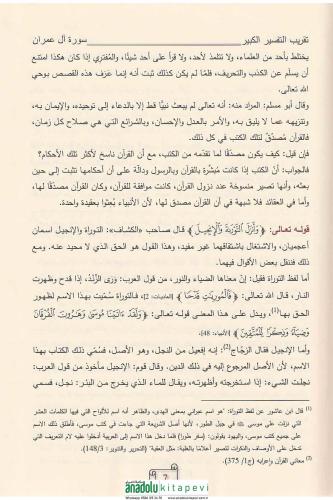 تقريب التفسير الكبير سورة آل عمران
يختلط بأحد من العلماء، ولا تتلمذ لأحد، ولا قرأ على أحد شيئًا، والمُفتري إذا كان هكذا امتنع
أن يسلَم عن الكذب والتحريف، فلمَّا لم يكن كذلك ثبت أنه إنما عَرَف هذه القصص بوحي
الله تعالى.
وقال أبو مسلم: المراد منه: أنه تعالى لم يبعث نبيًّا قط إلا بالدعاء إلى توحيده، والإيمان به،
وتنزيهه عما لا يليق به، والأمر بالعدل والإحسان، وبالشرائع التي هي صلاح كل زمان،
فالقرآن مُصدِّقٌ لتلك الكتب في كل ذلك.
فإن قيل: كيف يكون مصدقًا لما تقدّمه من الكتب، مع أن القرآن ناسخ لأكثر تلك الأحكام؟
فالجواب: أنَّ الكتب إذا كانت مُبشِّرة بالقرآن وبالرسول ودالّة على أن أحكامها تثبت إلى حين
بعثه، وأنها تصير منسوخة عند نزول القرآن، كانت موافقة للقرآن، وكان القرآن مصدقًا لها،
وأما في العقائد فلا شبهة في أن القرآن مصدق لها، لأن الأنبياء بُعثوا بعقيدة واحدة.
قوله تعالى: ﴿وَأَنزَلَ التَّوْرَاةَ وَالْإِنجِيلَ﴾ قال صاحب «الكشاف»: التوراة والإنجيل اسمان
أعجميان، والاشتغال باشتقاقهما غير مفيد، وهذا القول هو الحق الذي لا محيد عنه، ومع
ذلك فننقل بعض الأقوال فيهما.
أما لفظ التوراة فقيل: إنَّ معناها الضياء والنور، من قول العرب: وَرَى الزَّنْدُ، إذا قدح وظهرت
النار، قال الله تعالى: ﴿فَالْمُورِيَاتِ قَدْحًا﴾ [العاديات: 2]، فالتوراة سُمّيت بهذا الاسم لظهور
الحق بها(1)، ويدل على هذا المعنى قوله تعالى: ﴿وَلَقَدْ آتَيْنَا مُوسَىٰ وَهَارُونَ الْفُرْقَانَ
وَضِيَاءً وَذِكْرًا لِّلْمُتَّقِينَ﴾ [الأنبياء: 48].
وأما الإنجيل فقال الزجّاج(2): إنه إفعيل من النجل، وهو الأصل، فسُمّي ذلك الكتاب بهذا
الاسم، لأن الأصل المرجوع إليه في ذلك الدين، وقال قوم: الإنجيل مأخوذ من قول العرب:
نجلتُ الشيء: إذا استخرجته وأظهرته، ويقال للماء الذي يخرج من البئر: نجل، فسمي
(1) قال ابن عاشور عن لفظ التوراة: هو اسم عبراني بمعنى الهدى، والظاهر أنه اسم للألواح التي فيها الكلمات العشر
التي نزلت على موسى في جبل الطور، لأنها أصل الشريعة التي جاءت في كتب موسى، فأطلق ذلك الاسم
على جميع كتب موسى، واليهود يقولون: (سفر طورا) فلما دخل هذا الاسم إلى العربية أدخلوا عليه لام التعريف التي
تدخل على الأوصاف والنكرات لتصير أعلامًا بالغلبة: مثل العقبة. «التحرير والتنوير» (148/3).
(2) معاني القرآن وإعرابه (ج1/ 375)
7
anadolukitapevi